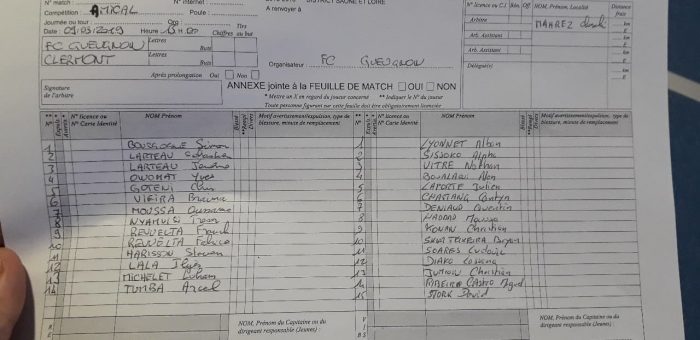 N° match :
Compétition : AMICAL Poule :
A renvoyer à
DISTRICT SAONE ET LOIRE
Journée ou tour : Gpe :
Date : 01/03/2019 Heure : 19H
Lettres Chiffres au but
FC GUEUGNON Buts
Lettres
CLERMONT Buts
Organisateur : FC GUEUGNON
Après prolongation Oui Non
N° licence ou C.I. Bén. Off. NOM, Prénom, Localité Distance frais
Arbitre MAHREZ
Arb. Assistant
Arb. Assistant
Délégué(e)
Signature de l'arbitre
ANNEXE jointe à la FEUILLE DE MATCH OUI NON
* Mettre un X en regard du joueur concerné ** Indiquer le N° du joueur
Toute personne figurant sur cette feuille doit être obligatoirement licenciée
N° licence ou N° Carte Identité NOM Prénom Motif avertissement/expulsion, type de blessure, minute de remplacement
N° licence ou N° Carte Identité NOM Prénom Motif avertissement/expulsion, type de blessure, minute de remplacement
1 BOURGOGNE Simon
2 LARTEAU Sebastien
3 LARTEAU Jérôme
4 OWONAT Yves
5 GOTENI Chris
6 VIEIRA Bruno
7 MOUSSA Ousmane
8
9 REVUELTA Franck
10 REVUELTA Fabrice
11 HARISSON Steven
12 LALA
13 MICHELET
14 TUMBA Axcel
1 LYONNET Alban
2 SISSOKO Alpha
3 VITRE Nathan
4
5 LAPORTE Julien
6 CHASTANG Corentyn
7 DENIAUD Quentin
8 HADDAD
9 KONAN Christian
10 SILVA TEIXEIRA Bryan
11 SOARES Ludovic
12 DIAKO
13 Christian
14 CASTRO
15 STORK David
NOM, Prénom du Capitaine ou du dirigeant responsable (Jeunes) :
NOM, Prénom du Capitaine ou du dirigeant responsable (Jeunes) :